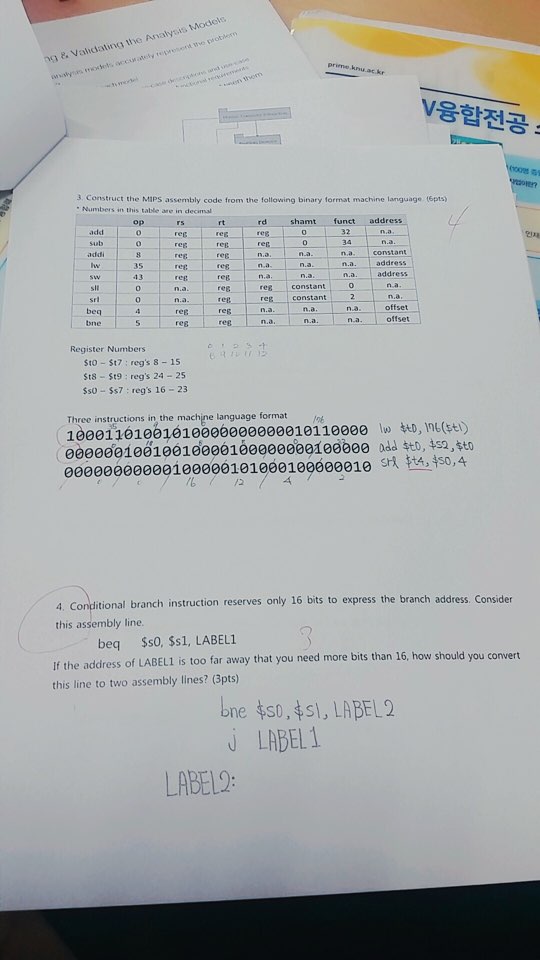 ng & Validating the Analysis Models
analysis models accurately represent the problem
prime.knu.ac.kr
V융합전공
3. Construct the MIPS assembly code from the following binary format machine language. (6pts)
* Numbers in this table are in decimal
4
op rs rt rd shamt funct address
add 0 reg reg reg 0 32 n.a.
sub 0 reg reg reg 0 34 n.a.
addi 8 reg reg n.a. n.a. n.a. constant
lw 35 reg reg n.a. n.a. n.a. address
sw 43 reg reg n.a. n.a. n.a. address
sll 0 n.a. reg reg constant 0 n.a.
srl 0 n.a. reg reg constant 2 n.a.
beq 4 reg reg n.a. n.a. n.a. offset
bne 5 reg reg n.a. n.a. n.a. offset
Register Numbers
0 1 2 3 4
8 9 10 11 12
$t0 - $t7 : reg's 8 - 15
$t8 - $t9 : reg's 24 - 25
$s0 - $s7 : reg's 16 - 23
Three instructions in the machine language format
10001101001010000000000010110000 lw $t0, 176($t1)
00000010010010000100000000100000 add $t0, $s2, $t0
00000000000100000110000100000010 srl $t4, $s0, 4
0 0 16 12 4 2
4. Conditional branch instruction reserves only 16 bits to express the branch address. Consider
this assembly line.
beq $s0, $s1, LABEL1
3
If the address of LABEL1 is too far away that you need more bits than 16, how should you convert
this line to two assembly lines? (3pts)
bne $s0, $s1, LABEL2
j LABEL1
LABEL2: